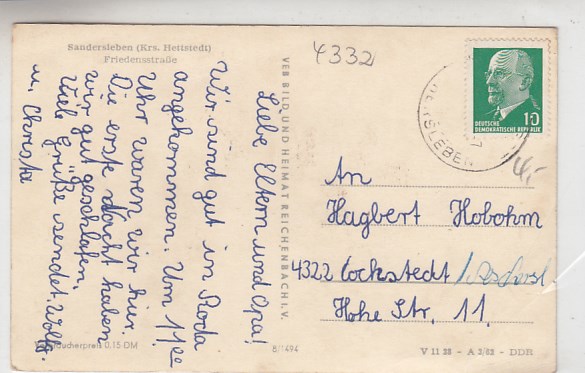 Sandersleben (Krs. Hettstedt)
Friedensstraße
4332
Liebe Eltern und Opa!
Wir sind gut in Roda
angekommen. Um 11 00
Uhr waren wir hier.
Die erste Nacht haben
wir gut geschlafen.
Viele Grüße sendet Wolfg.
u. Christa
Verbraucherpreis 0.15 DM
VEB BILD UND HEIMAT REICHENBACH I.V.
8/1494
DEUTSCHE
DEMOKRATISCHE REPUBLIK
10
4,-
An
Hagbert Hobohm
4322 Cockstedt
Hohe Str. 11
V 11 28 - A 3/63 - DDR